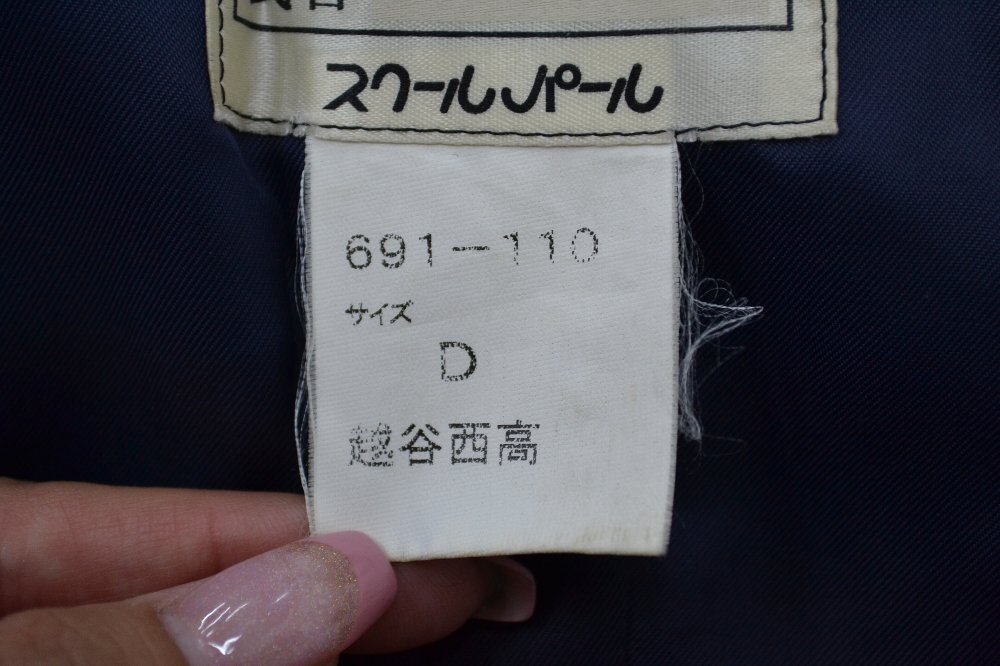 スクールパール
691-110
サイズ
D
越谷西高